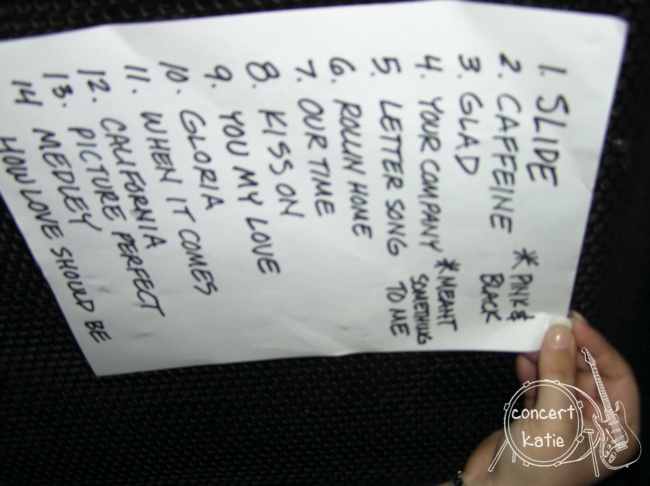 1. SLIDE
2. CAFFEINE * PINK &
BLACK
3. GLAD
4. YOUR COMPANY * MEANT
SOMETHING
TO ME
5. LETTER SONG
6. ROLLIN HOME
7. OUR TIME
8. KISS ON
9. YOU MY LOVE
10. GLORIA
11. WHEN IT COMES
12. CALIFORNIA
13. PICTURE PERFECT
14 MEDLEY
HOW LOVE SHOULD BE
concert
katie